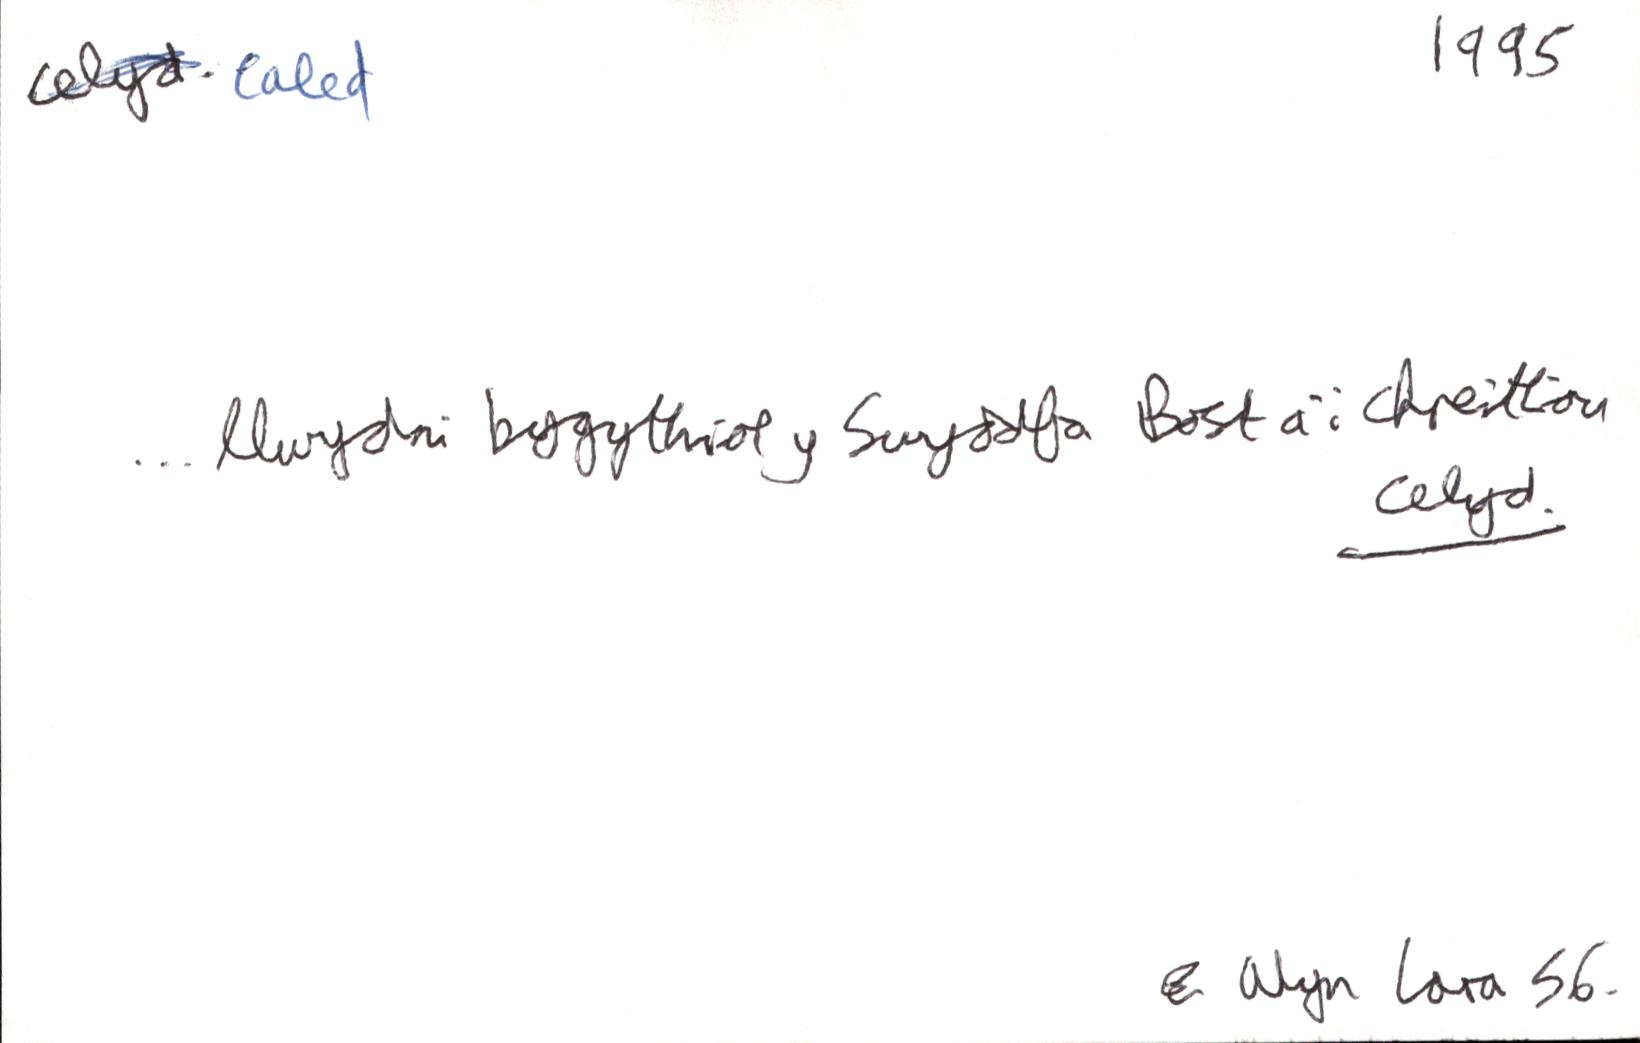 celyd. caled
1995
... llwydni bygythiol y Swyddfa Bost a'i chreittiau
celyd.
E. Alyn Lara 56.